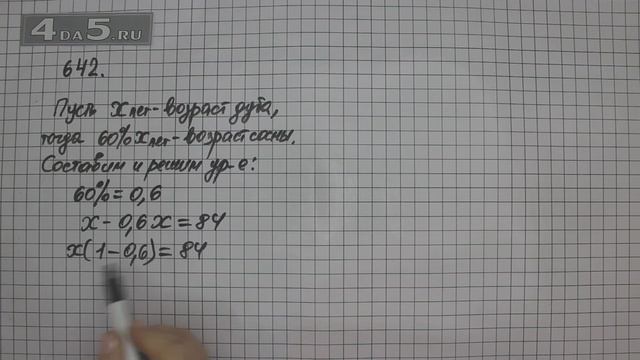 4DA5.RU
642.
Пусть x лет - возраст дуба,
тогда 60% x лет - возраст сосны.
Составим и решим ур-е:
60% = 0,6
x - 0,6x = 84
x(1 - 0,6) = 84